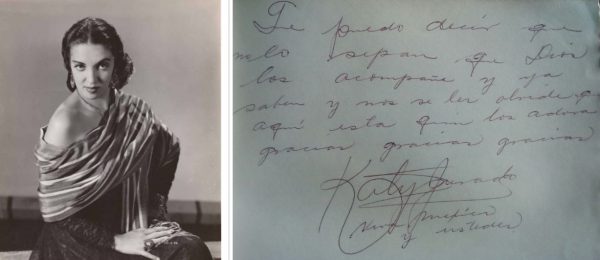 Te puedo decir que
lo sepan que Dios
los acompañe y ya
saben y nos se les olvide q
aqui esta quin los adora
gracias gracias gracias
Katy Jurado
y ustedes